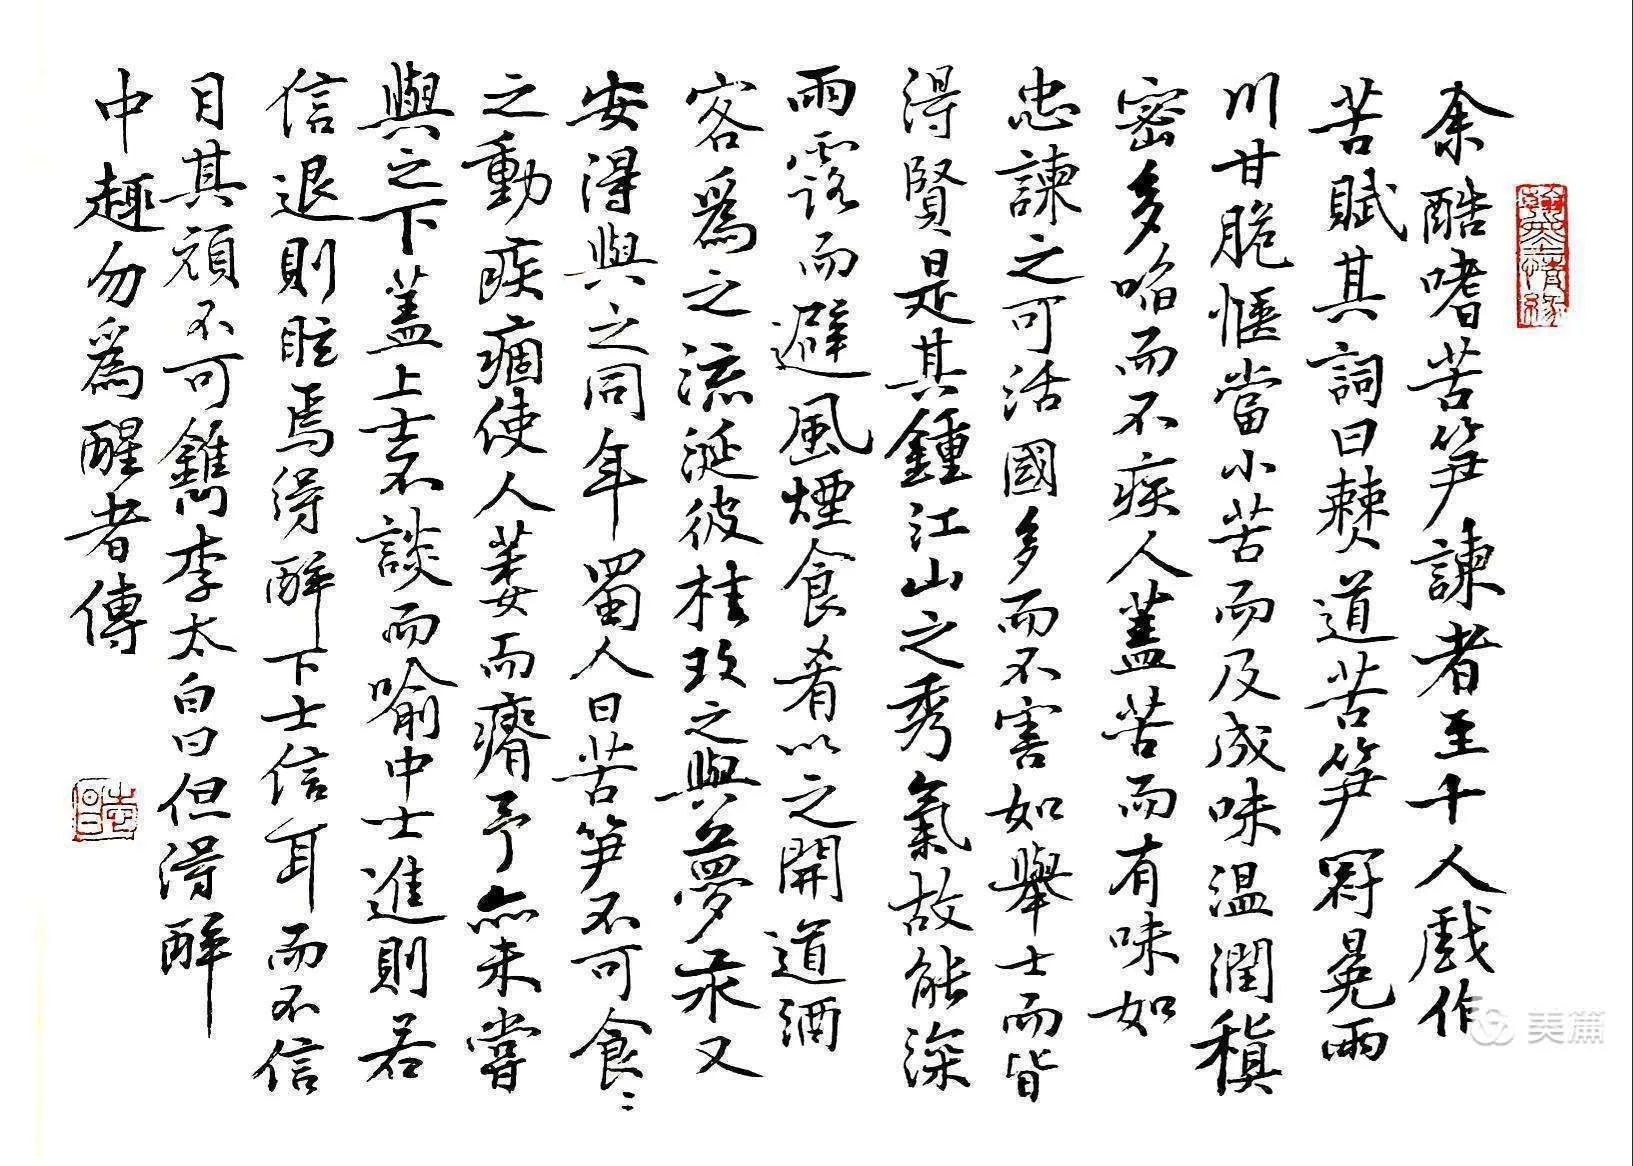 余酷嗜苦笋諫者至十人戲作
苦賦其詞曰僰道苦笋冠冕兩
川甘脆愜當小苦而及成味温潤稹
密多啗而不疾人蓋苦而有味如
忠諫之可活國多而不害如舉士而皆
得賢是其鍾江山之秀氣故能深
雨露而避風煙食肴以之開道酒
客爲之流涎彼桂玫之與夢永又
安得與之同年蜀人曰苦笋不可食〻
之動疾痼使人萎而瘠予亦未嘗
與之下蓋上士不談而喻中士進則若
信退則眩焉得醉下士信耳而不信
目其頑不可鐫李太白曰但得醉
中趣勿爲醒者傳
美篇